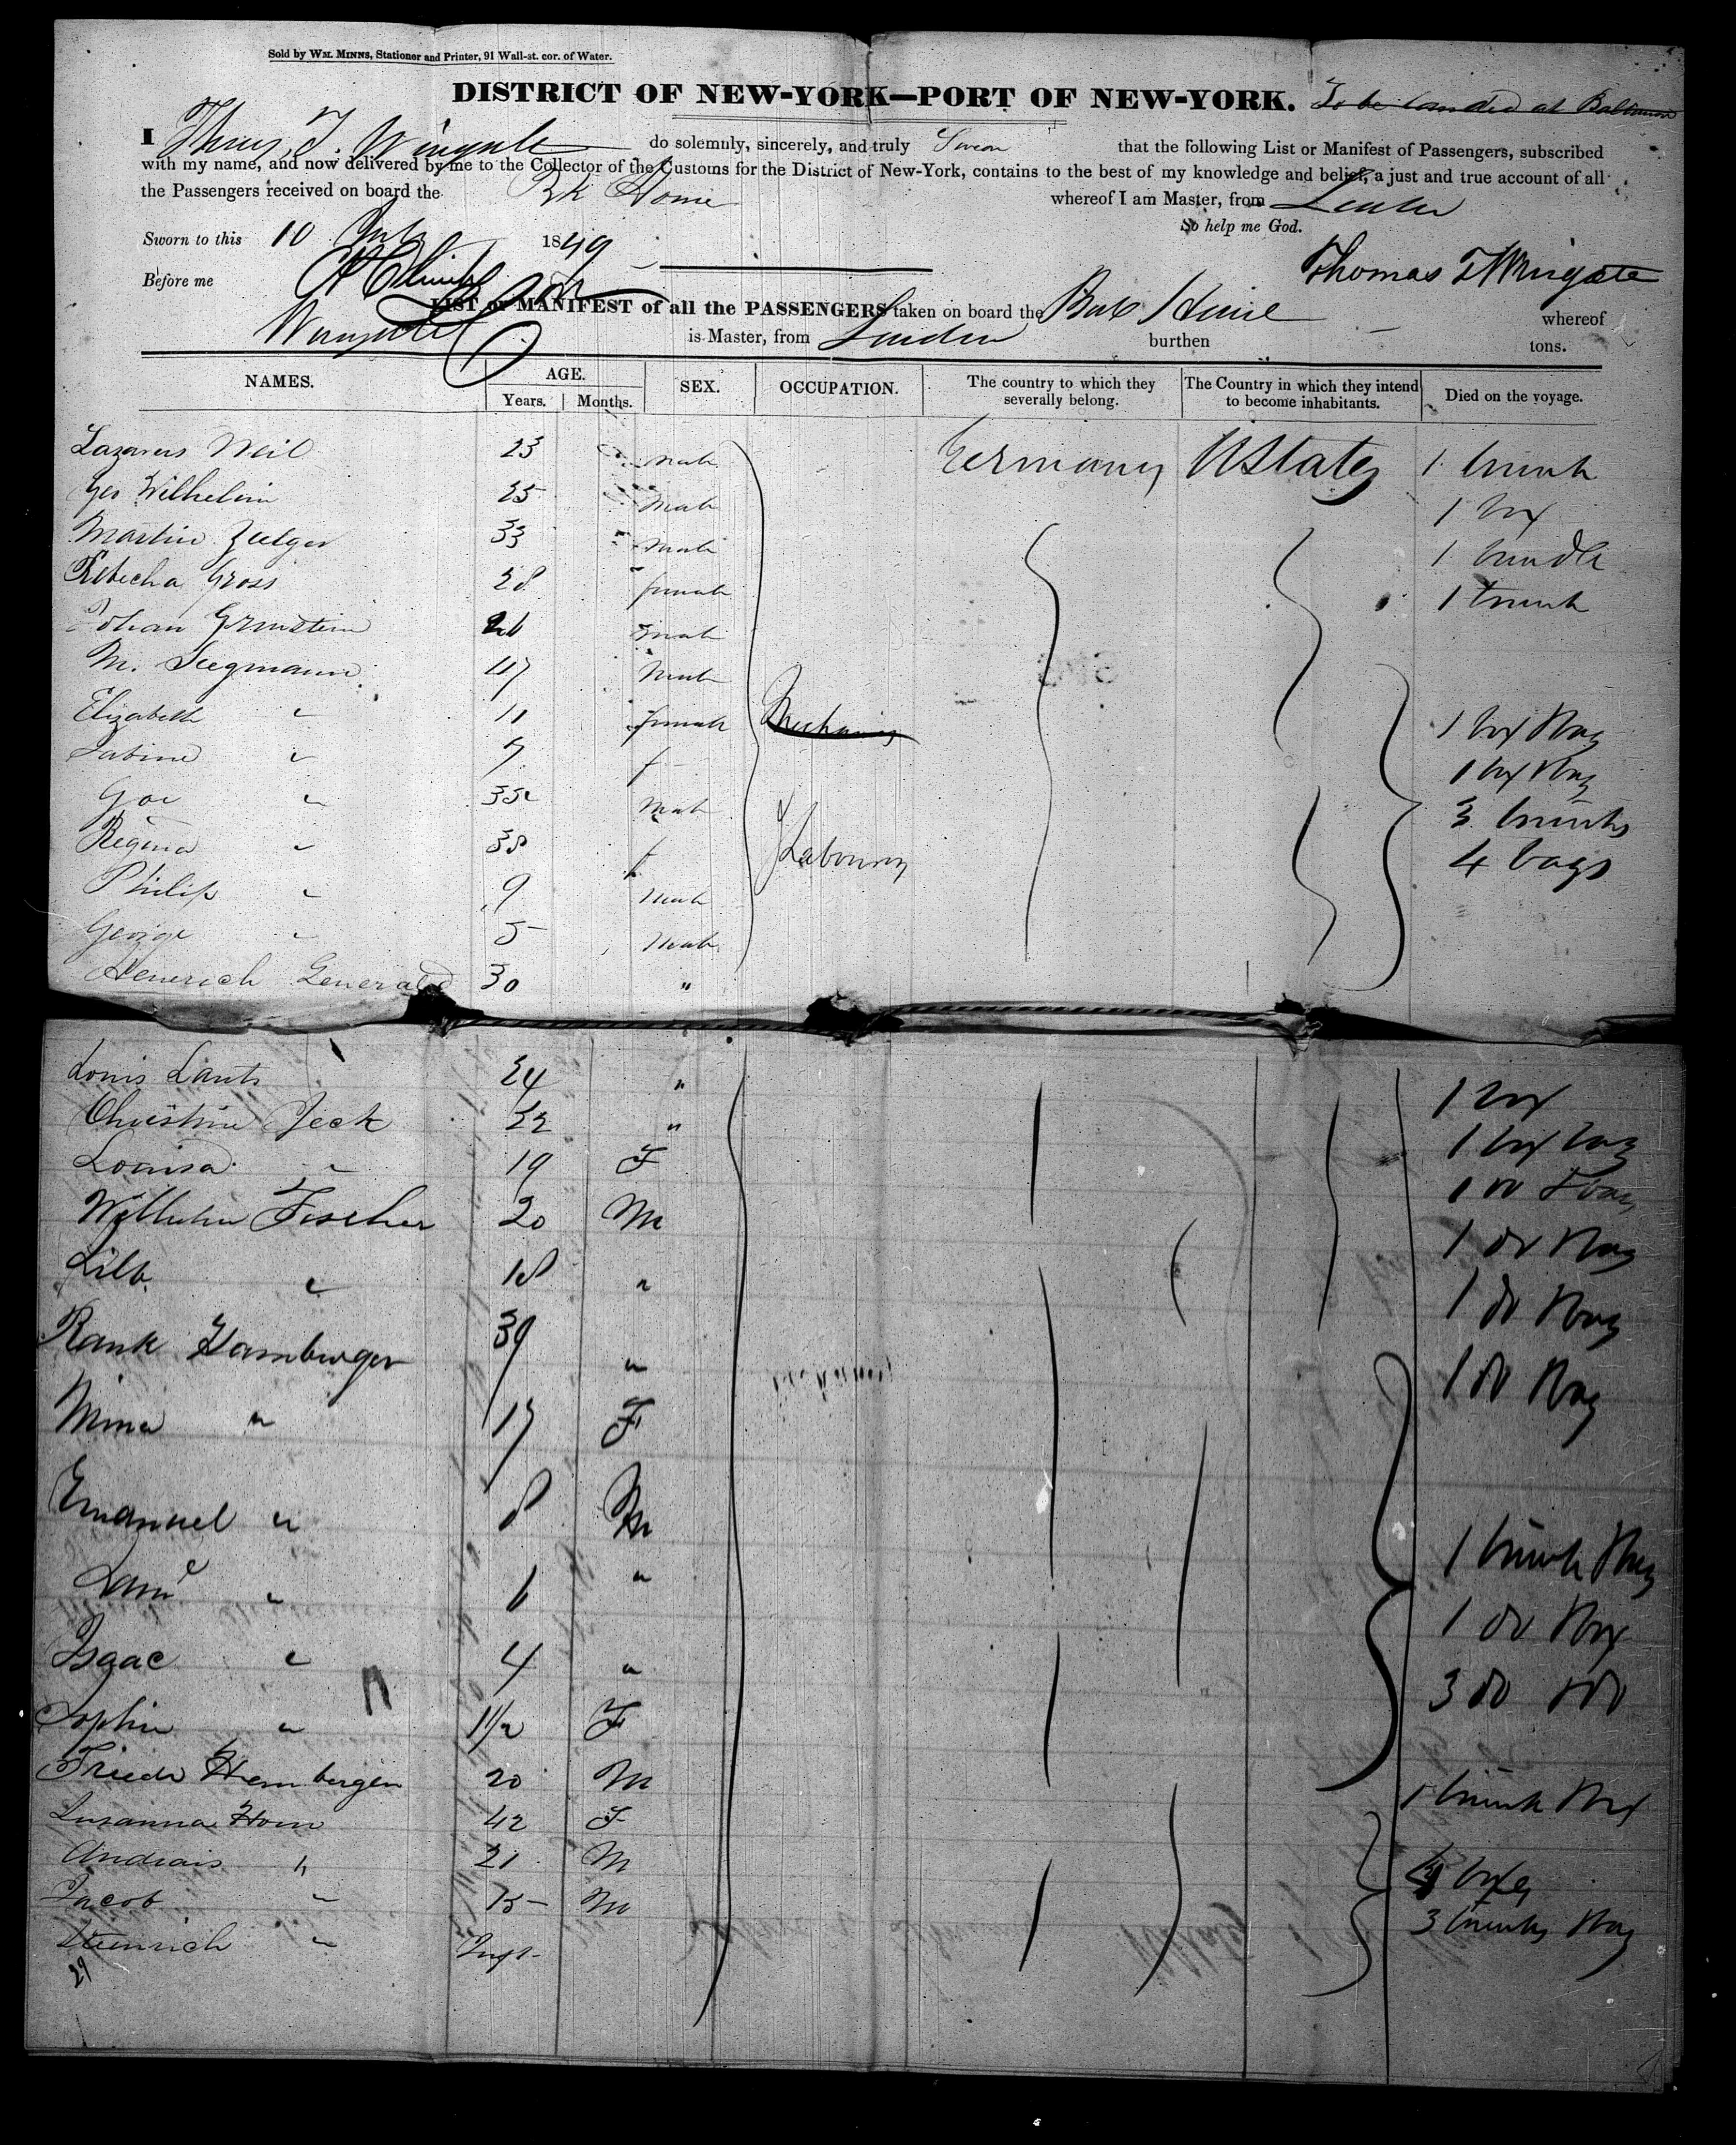 Sold by WM. MINNS, Stationer and Printer, 91 Wall-st. cor. of Water.
DISTRICT OF NEW-YORK—PORT OF NEW-YORK. To be landed at Baltimore
I Thos. T. Wingate do solemnly, sincerely, and truly Swear that the following List or Manifest of Passengers, subscribed
with my name, and now delivered by me to the Collector of the Customs for the District of New-York, contains to the best of my knowledge and belief, a just and true account of all
the Passengers received on board the Bk Home whereof I am Master, from London
So help me God.
Sworn to this 10 July 1849
Thomas T Wingate
Before me
LIST or MANIFEST of all the PASSENGERS taken on board the Bark Home whereof
Wingate is Master, from London burthen tons.
NAMES. AGE. SEX. OCCUPATION. The country to which they severally belong. The Country in which they intend to become inhabitants. Died on the voyage.
Years. Months.
Lazarus Weil 23 male Germany UStates 1 trunk
Geo Wilhelm 25 male 1 box
Martin Zeelger 33 male 1 bundle
Rebecha Gross 28 female 1 trunk
Johan 26 male
M. Siegmann 47 male
Elizabeth " 11 female Mechanics 1 box 1 bag
Sabine " 7 f 1 box 1 bag
" 35 male 3 trunks
Regina " 38 f Labourers 4 bags
Philip " 9 male
George " 5 male
Henerich General 30 "
Louis Lants 24 "
Christine Jeck 22 " 1 box
Louisa " 19 F 1 box bag
Wilhelm Fischer 20 M 1 do 1 bag
" 18 " 1 do 1 bag
Rank Hamburger 39 " 1 do 1 bag
Mina " 17 F 1 do 1 bag
Emanuel " 8 M
" 6 " 1 trunk 1 bag
Isaac " 4 " 1 do 1 box
Sophia " 1 1/2 F 3 do do
Friedr Hembergen 20 M
Susanna Horn 42 F 1 trunk 1 box
Andreas " 21 M
Jacob " 15 M 4 boxes
Heinrich " Inft 3 trunks 1 bag
29